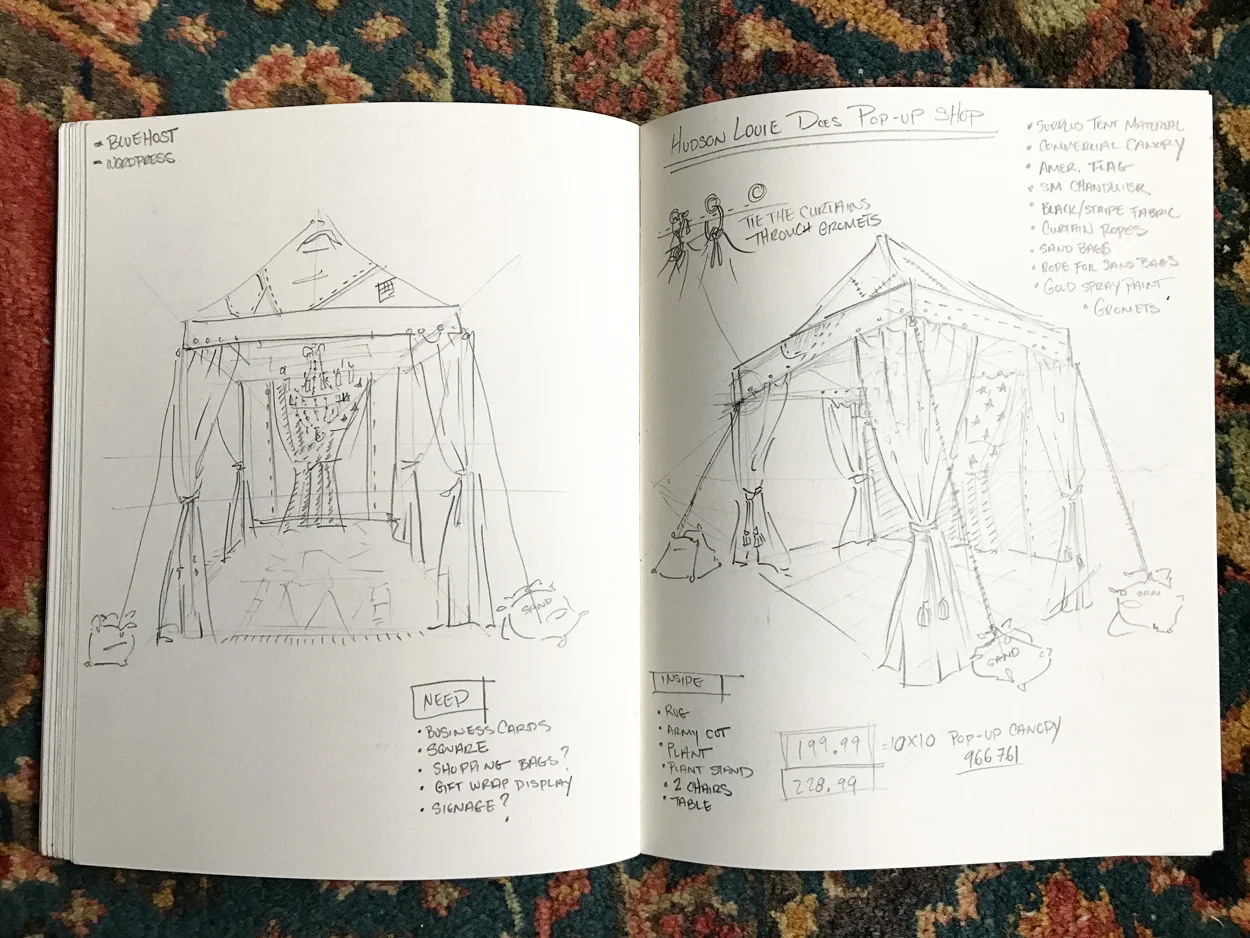 - BLUEHOST
- WORDPRESS
SAND
NEED
• BUSINESS CARDS
• SQUARE
• SHOPPING BAGS?
• GIFT WRAP DISPLAY
• SIGNAGE?
HUDSON LOUIE DOES POP-UP SHOP
TIE THE CURTAINS
THROUGH GROMETS
• SURPLUS TENT MATERIAL
• COMMERCIAL CANOPY
• AMER. FLAG
• SM CHANDELIER
• BLACK/STRIPE FABRIC
• CURTAIN ROPES
• SAND BAGS
• ROPE FOR SAND BAGS
• GOLD SPRAY PAINT
• GROMETS
SAND
SAND
INSIDE
• RUG
• ARMY COT
• PLANT
• PLANT STAND
• 2 CHAIRS
• TABLE
199.99 = 10X10 POP-UP CANOPY
966761
228.99